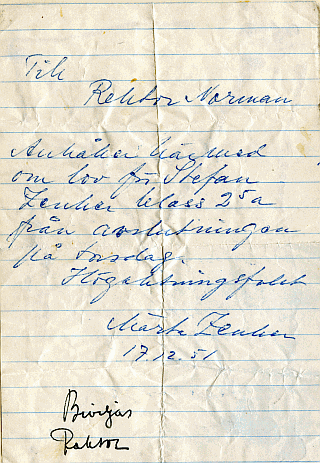 Till
Rektor Norman
Anhåller härmed
om lov för Stefan
Zenker klass 25a
från avslutningen
på torsdag.
Högaktningsfullt
Märta Zenker
17.12.51
Beviljas
Rektor